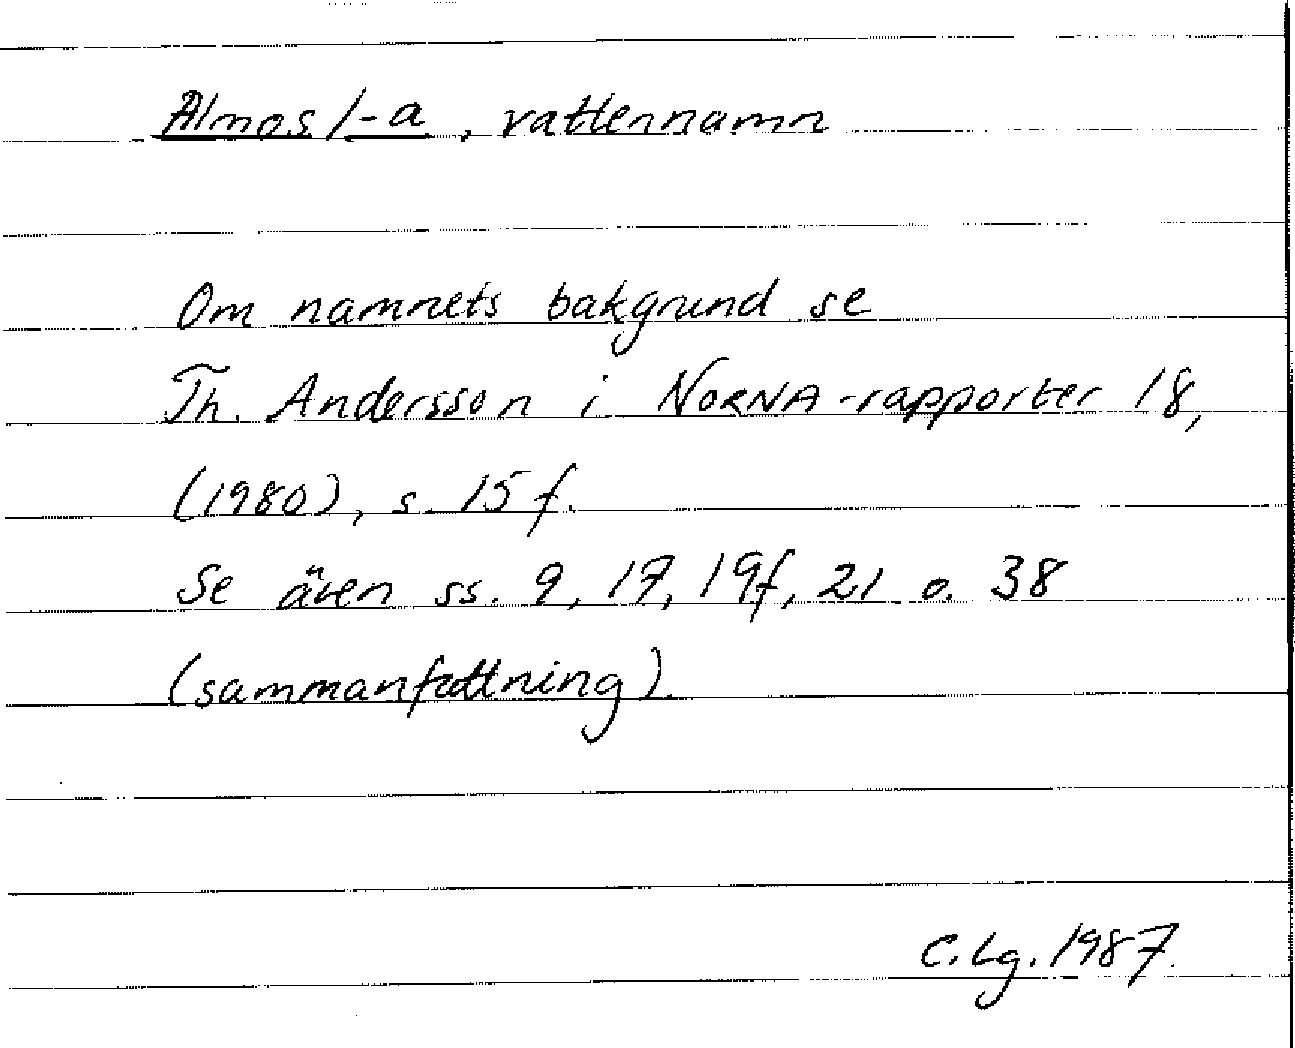 Almos/-a, vattennamn
Om namnets bakgrund se
Th. Andersson i NORNA-rapporter 18,
(1980), s. 15 f.
Se även ss. 9, 17, 19f, 21 o. 38
(sammanfattning).
C. Lg. 1987.